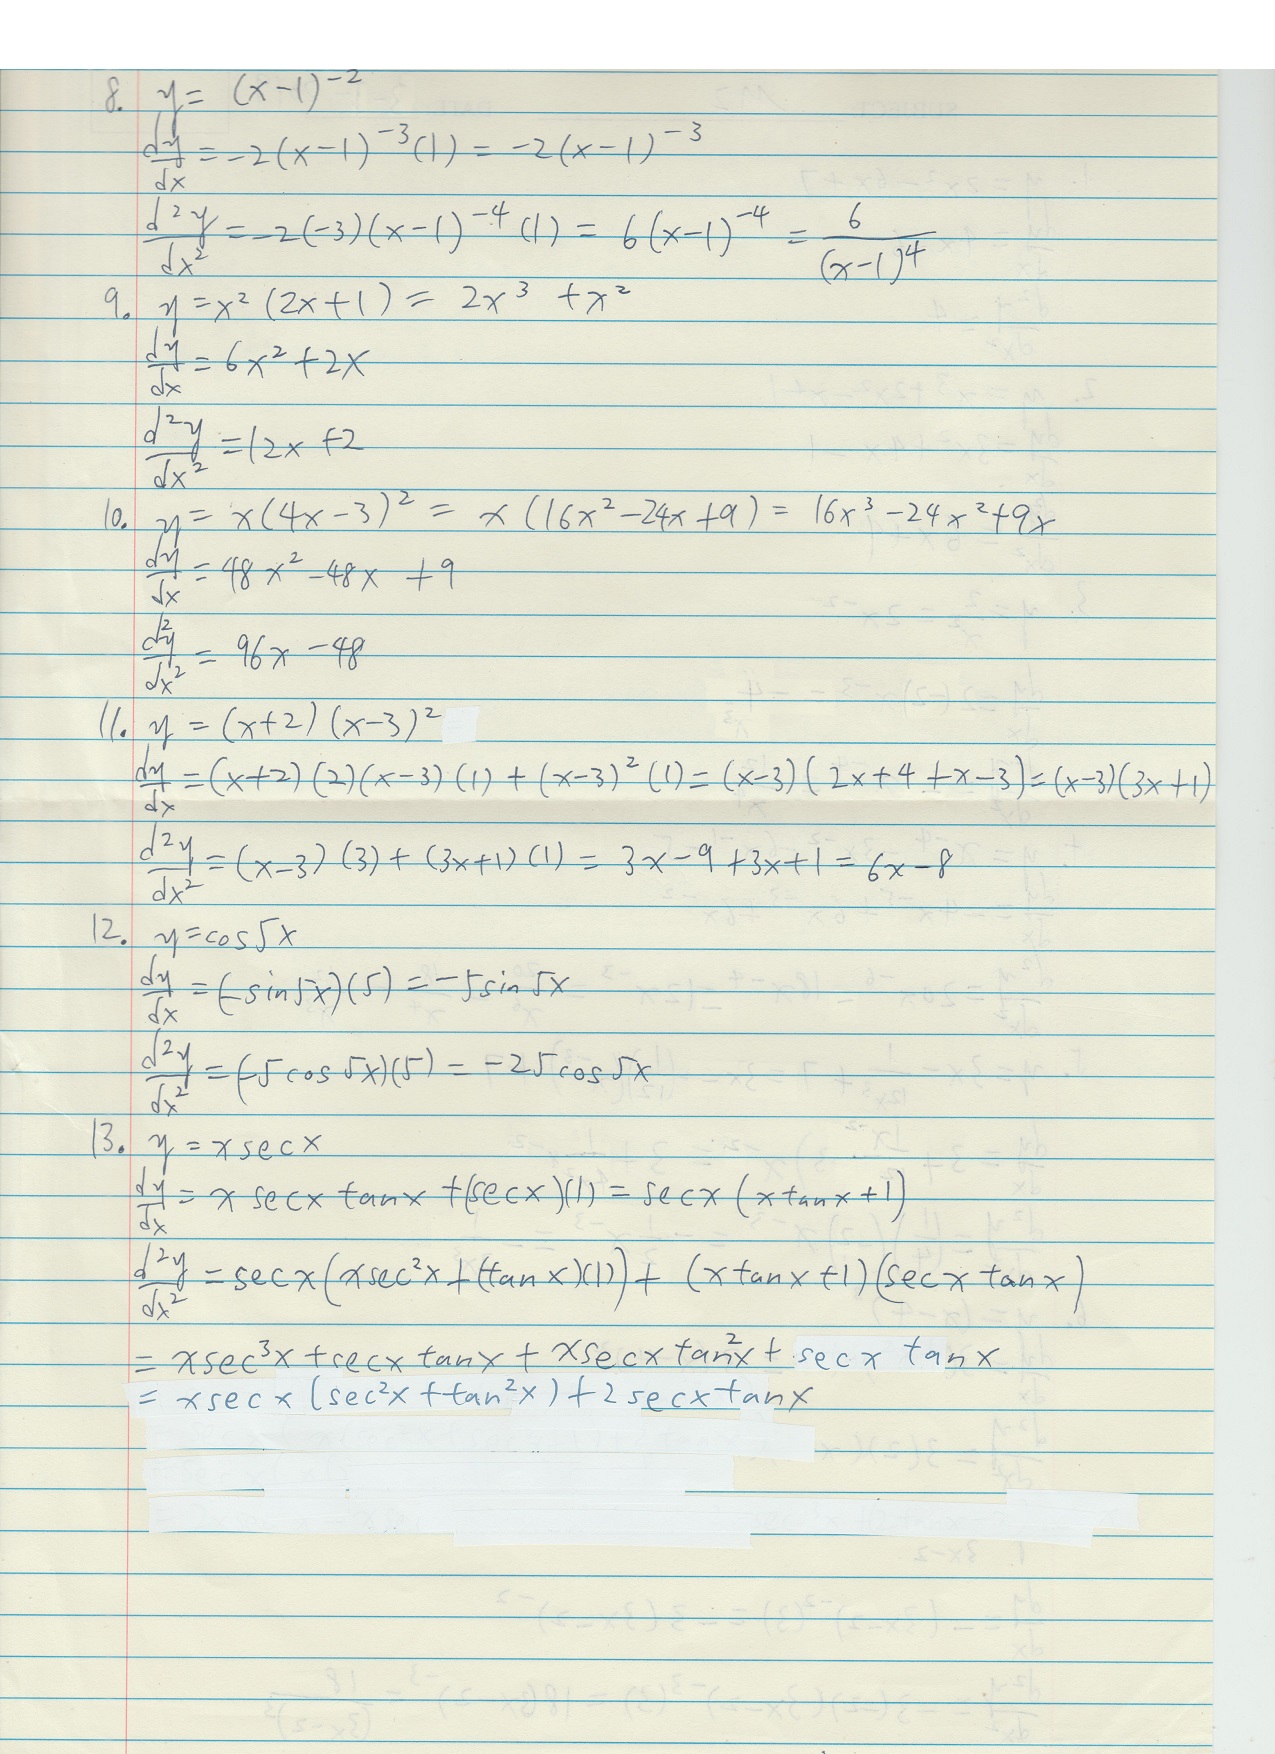 8. y = (x-1)^-2
dy/dx = -2(x-1)^-3(1) = -2(x-1)^-3
d²y/dx² = -2(-3)(x-1)^-4(1) = 6(x-1)^-4 = 6/(x-1)^4
9. y = x²(2x+1) = 2x³ + x²
dy/dx = 6x² + 2x
d²y/dx² = 12x + 2
10. y = x(4x-3)² = x(16x²-24x+9) = 16x³-24x²+9x
dy/dx = 48x² -48x + 9
d²y/dx² = 96x - 48
11. y = (x+2)(x-3)²
dy/dx = (x+2)(2)(x-3)(1) + (x-3)²(1) = (x-3)(2x+4+x-3) = (x-3)(3x+1)
d²y/dx² = (x-3)(3) + (3x+1)(1) = 3x-9+3x+1 = 6x-8
12. y = cos5x
dy/dx = (-sin5x)(5) = -5sin5x
d²y/dx² = (-5cos5x)(5) = -25cos5x
13. y = x sec x
dy/dx = x secx tanx + (secx)(1) = secx(x tanx+1)
d²y/dx² = secx(xsec²x + (tanx)(1)) + (x tanx+1)(secx tanx)
= xsec³x + secx tanx + xsecx tan²x + secx tanx
= xsecx(sec²x + tan²x) + 2secx tanx